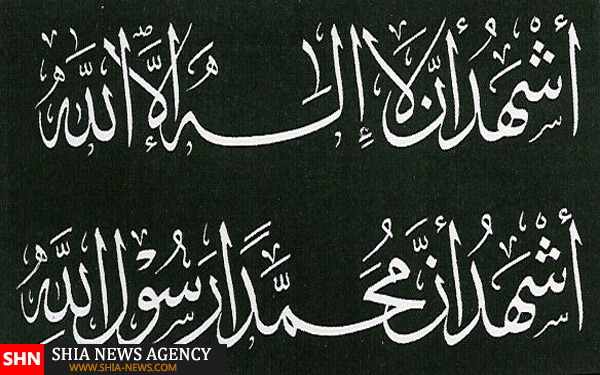 أشْهَدُ أنّ لَا إِلَـٰه إِلَّا اللّٰهُ
أشْهَدُ أنَّ مُحَمَّدًا رَسُوْلُ اللّٰهِ
SHN SHIA NEWS AGENCY
WWW.SHIA-NEWS.COM